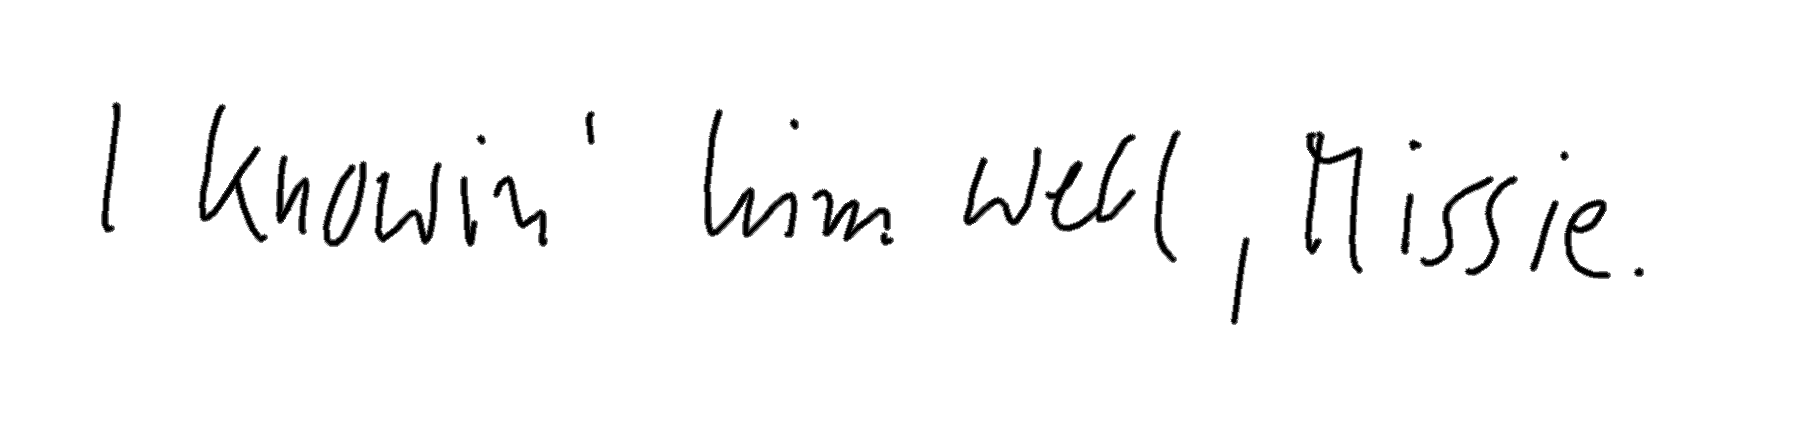 I knowin' him well, Missie.